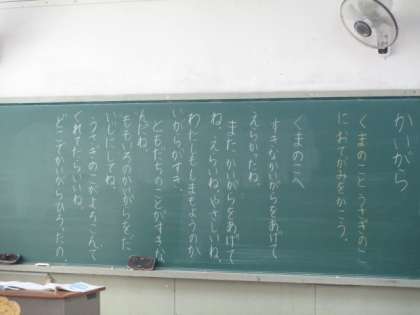 かいがら
くまのことうさぎのこ
におてがみをかこう。
くまのこへ
すきなかいがらをあげて
えらかったね。
またかいがらをあげて
ね。えらいね。やさしいね。
わたしもしまもようのか
いがらがすき。
ともだちのことがすきな
んだね。
ももいろのかいがらをた
いじにしてね。
うさぎのこがよろこんで
くれてたらいいね。
どこでかいがらひろったの。